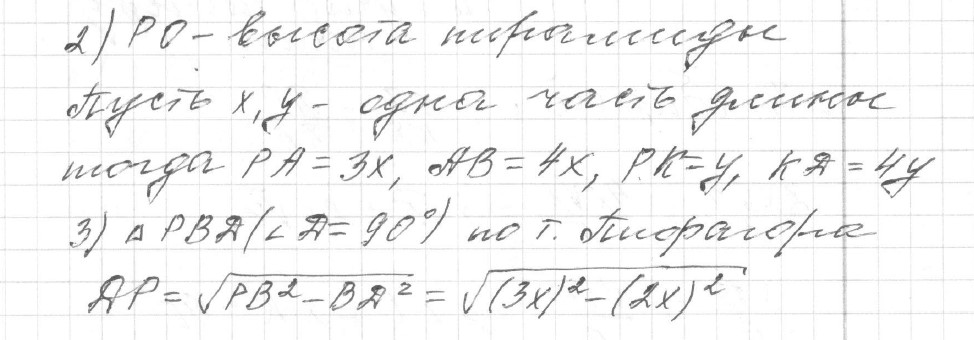 2) PO - высота пирамиды
Пусть x, y - одна часть длины
тогда PA = 3x, AB = 4x, PK = y, KD = 4y
3) △ PBD (∠ D = 90°) по т. Пифагора
DP = √(PB² - BD²) = √((3x)² - (2x)²)